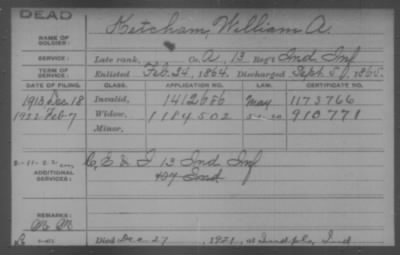 DEAD
NAME OF SOLDIER: Ketcham, William A.
SERVICE: Late rank, Co. A, 13 Reg't Ind. Inf
TERM OF SERVICE: Enlisted Feb. 24, 1864. Discharged Sept. 5, 1865.
DATE OF FILING. CLASS. APPLICATION NO. LAW. CERTIFICATE NO.
1913 Dec 18 Invalid, 1412686 May 1173766
1922 Feb 7 Widow, 1184502 5-1-20 910771
Minor,
ADDITIONAL SERVICES: Co, E & I 13 Ind Inf
Ind
REMARKS:
Died Dec 27, 1921, at Indpls, Ind